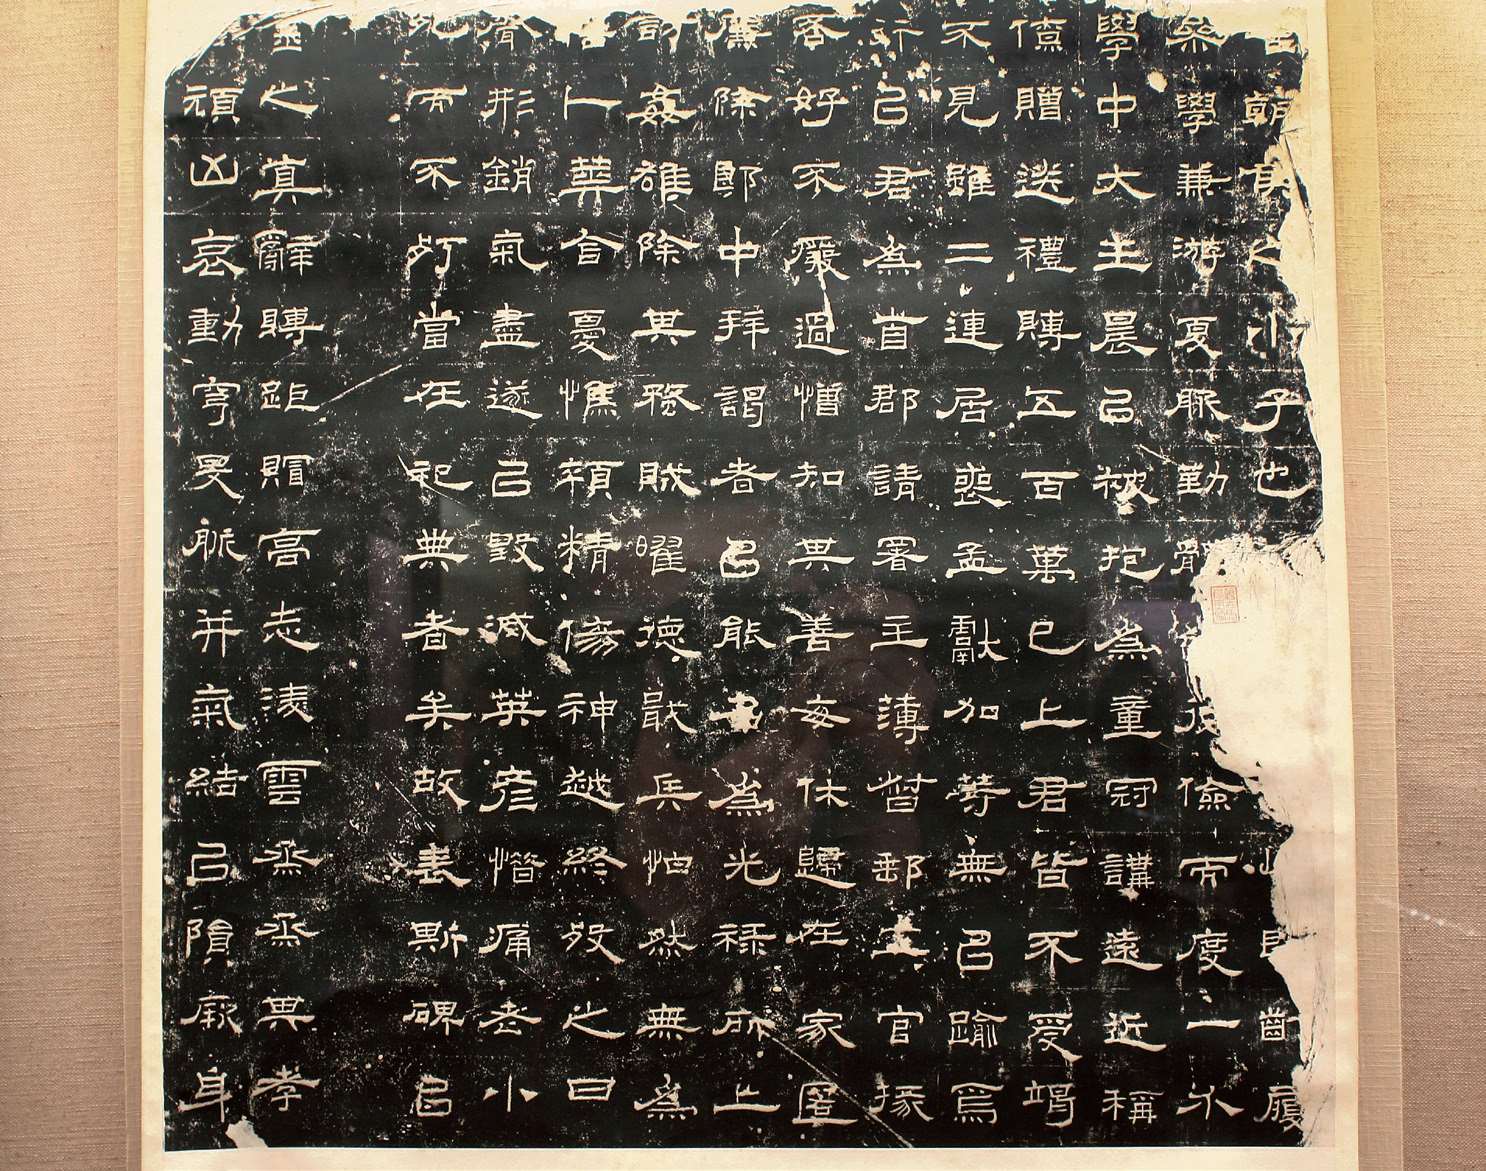 朝侯之小子也 齔履
學兼游夏服勤體 儉而度一
學中大主晨以被抱為童冠講遠近稱
僖贈送禮賻五百萬已上君皆不受竭
不見雖二連居喪孟獻加等無以踰焉
以君為首郡請署主簿督郵五官掾
好不廢過憎知其善每休歸在家匿
廉除郎中拜謁者以能名為光祿所上
討姦雄除其蝥賊曜德戢兵怕然無為
人葬合憂憔顇精傷神越終歿之日
形銷氣盡遂以毀滅英彥惜痛老小
死而不朽當在祀典者矣故表斯碑以
之真辭賻距賵高志淩雲烝烝其孝
凶哀動穹旻脈并氣結以隕厥身